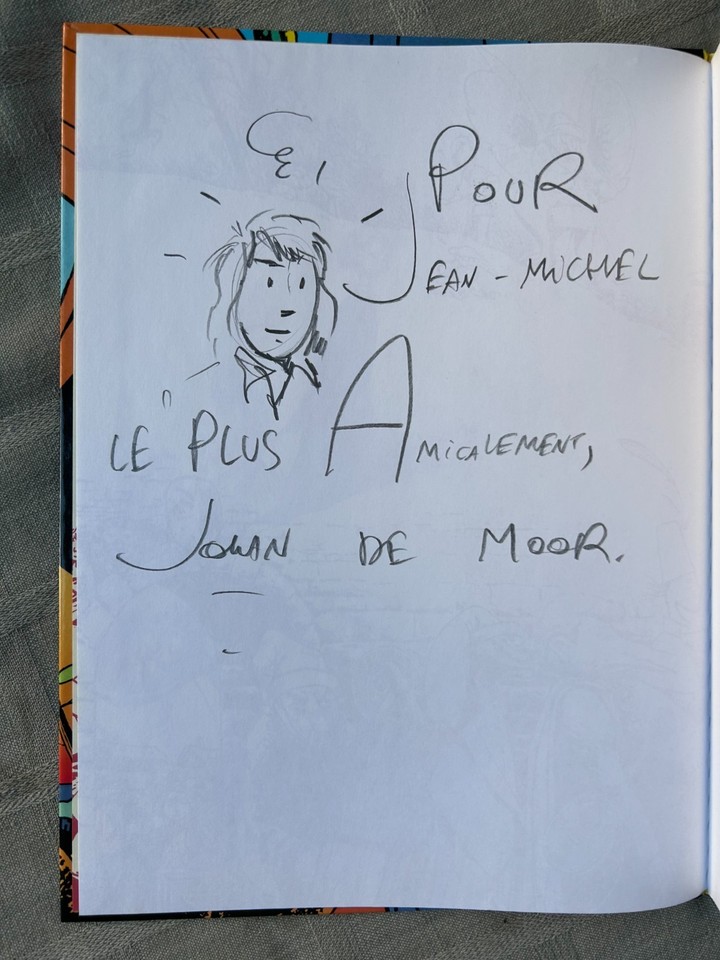 POUR
JEAN-MICHEL
LE PLUS AMICALEMENT,
JOHAN DE MOOR.